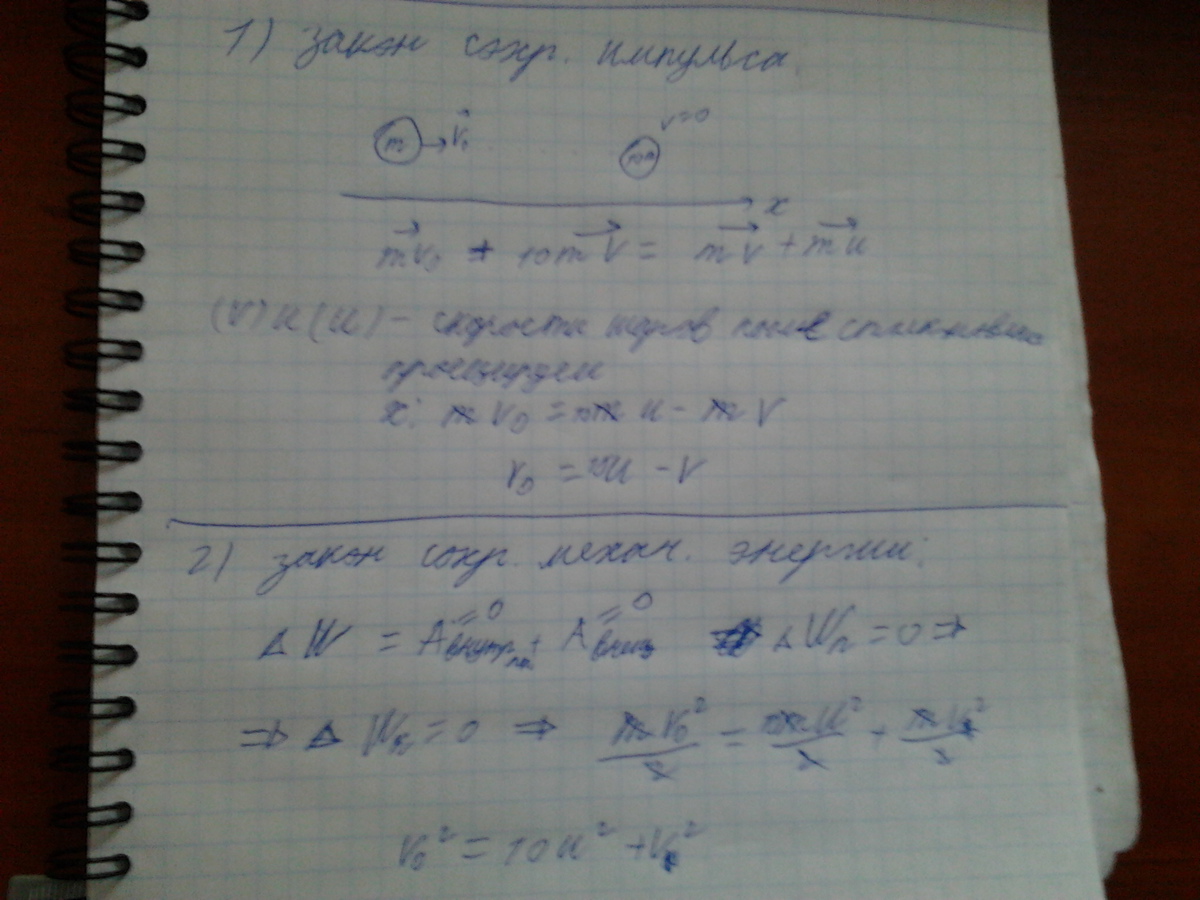 1) закон сохр. импульса.
m → v⃗₀ v=0 10m
x
m⃗v₀ + 10m⃗v = m⃗v + m⃗u
(v) и (u) - скорости шаров после столкновения
проецируем
x: mv₀ = 10mu - mv
v₀ = 10u - v
2) закон сохр. механ. энергии:
ΔW = Aвнутр =0 + Aвнеш =0 ΔWп = 0 ⇒
⇒ ΔWк = 0 ⇒ mv₀²/2 = 10mu²/2 + mv²/2
v₀² = 10u² + v²